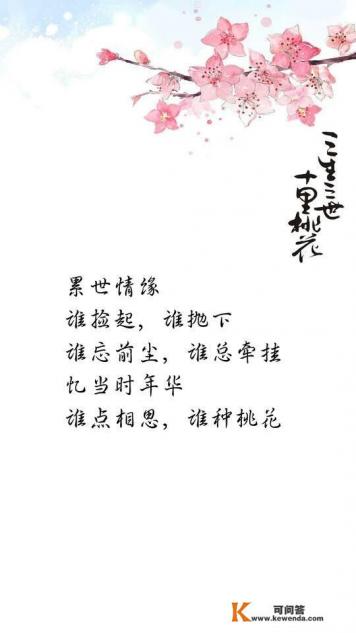 三生三世
十里桃花
累世情缘
谁捡起，谁抛下
谁忘前尘，谁总牵挂
忆当时年华
谁点相思，谁种桃花
K 可问答
www.kewenda.com